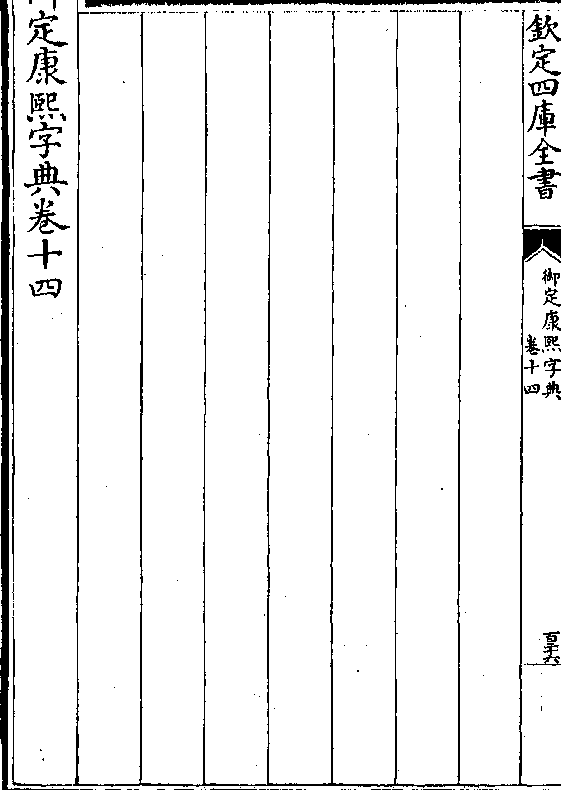 欽定四庫全書
御定康熙字典
卷十四
定康熙字典卷十四